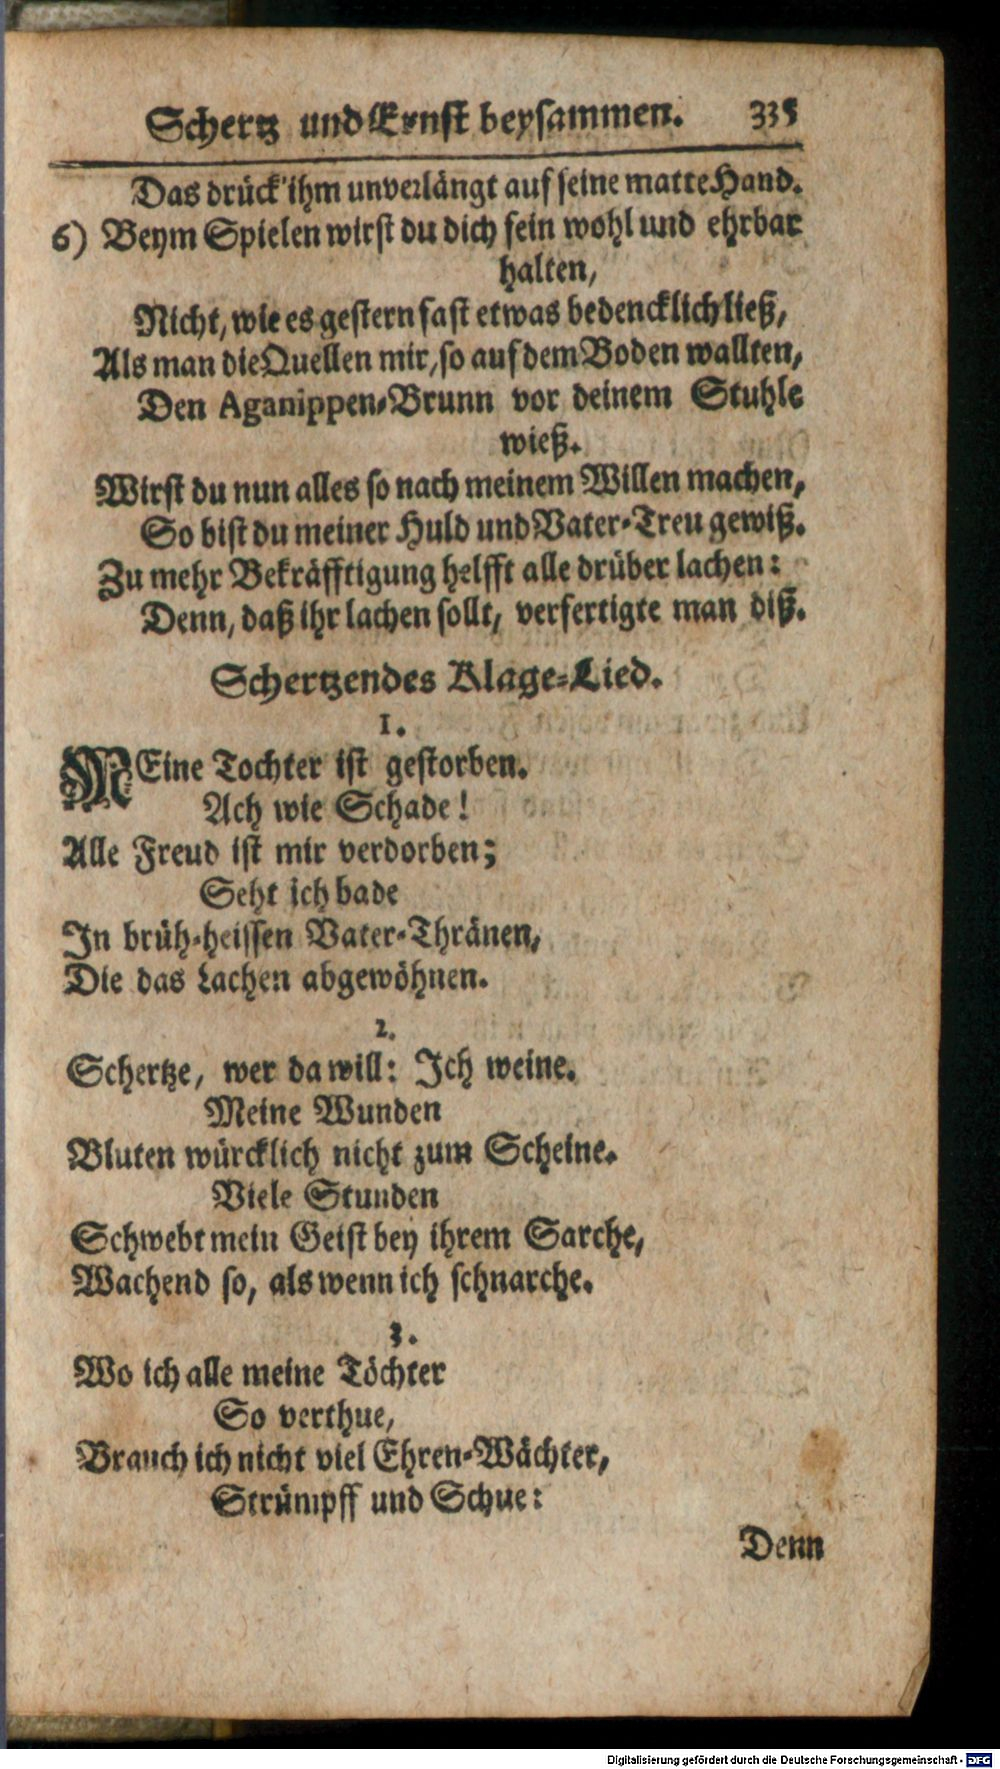 Schertz und Ernst beysammen. 335
Das drück' ihm unverlängt auf seine matte Hand.
6) Beym Spielen wirst du dich fein wohl und ehrbar
halten,
Nicht, wie es gestern fast etwas bedencklich ließ,
Als man die Quellen mir, so auf dem Boden wallten,
Den Aganippen-Brunn vor deinem Stuhle
wieß.
Wirst du nun alles so nach meinem Willen machen,
So bist du meiner Huld und Vater-Treu gewiß.
Zu mehr Bekräfftigung helfft alle drüber lachen:
Denn, daß ihr lachen sollt, verfertigte man diß.
Schertzendes Klage-Lied.
1.
MEine Tochter ist gestorben.
Ach wie Schade!
Alle Freud ist mir verdorben;
Seht ich bade
In brüh-heissen Vater-Thränen,
Die das Lachen abgewöhnen.
2.
Schertze, wer da will: Ich weine.
Meine Wunden
Bluten würcklich nicht zum Scheine.
Viele Stunden
Schwebt mein Geist bey ihrem Sarche,
Wachend so, als wenn ich schnarche.
3.
Wo ich alle meine Töchter
So verthue,
Brauch ich nicht viel Ehren-Wächter,
Strümpff und Schue:
Denn
Digitalisierung gefördert durch die Deutsche Forschungsgemeinschaft - DFG